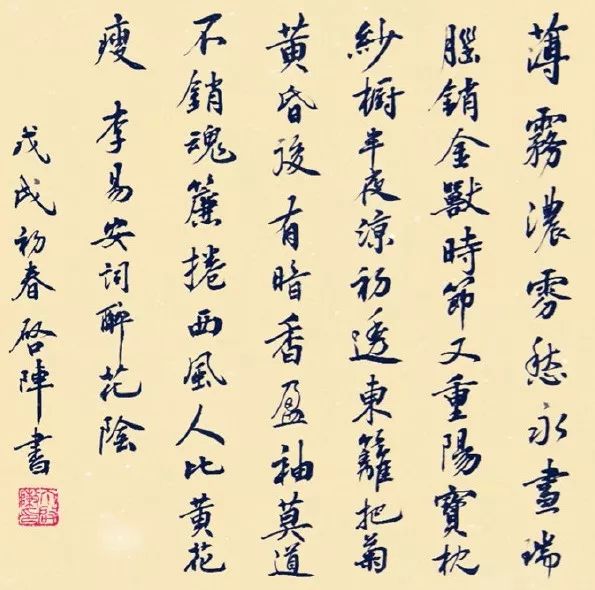 薄霧濃雰愁永晝瑞
腦銷金獸時節又重陽寶枕
紗櫥半夜涼初透東籬把菊
黃昏後有暗香盈袖莫道
不銷魂簾捲西風人比黃花
瘦 李易安詞醉花陰
戊戌初春啓陣書